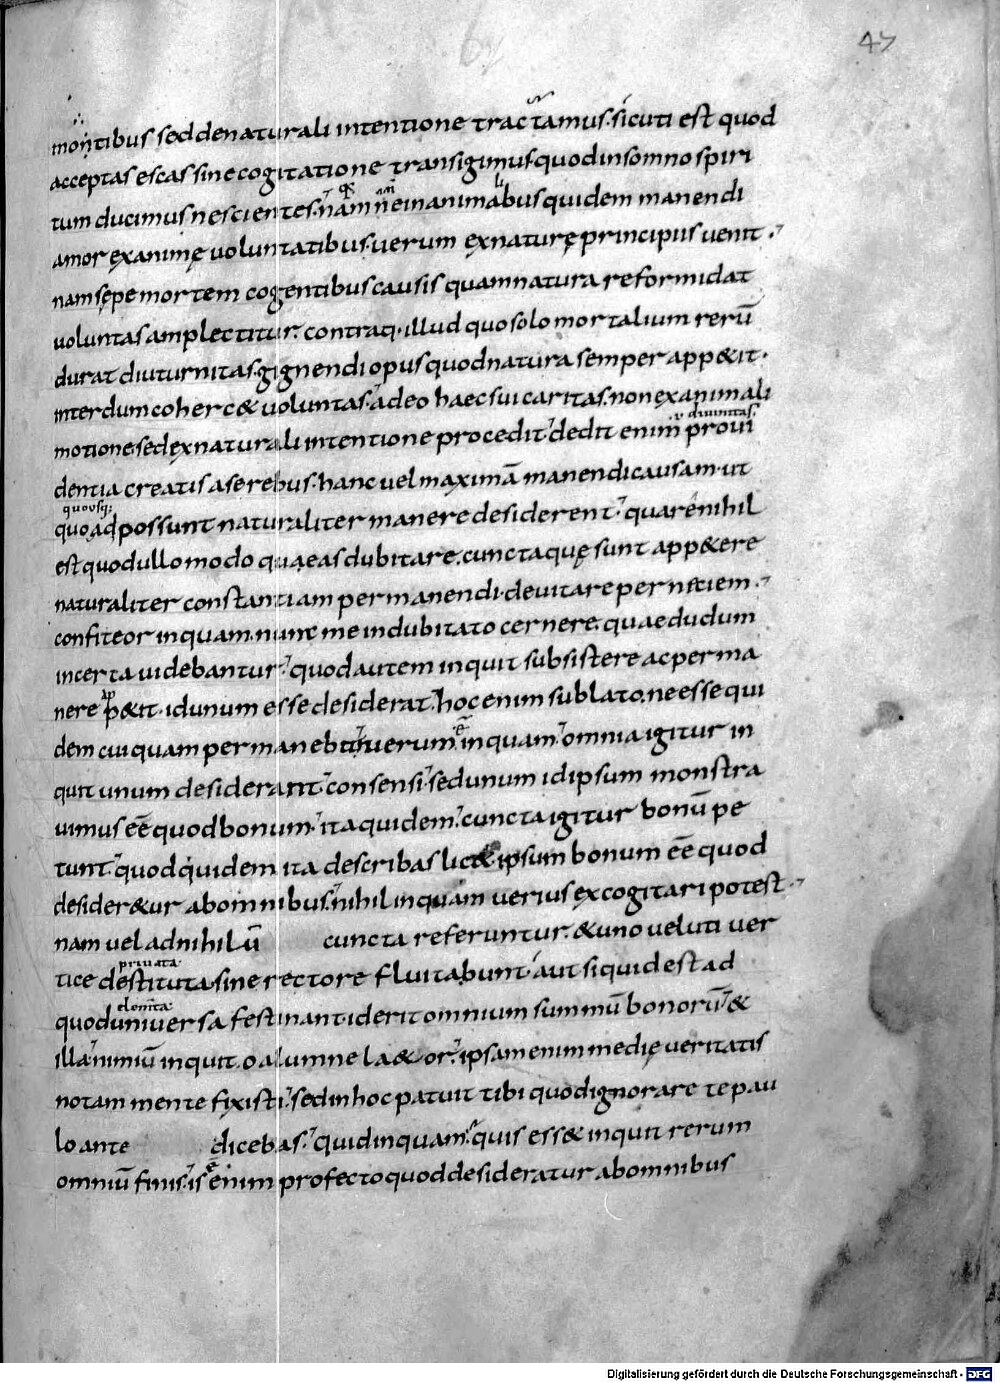 47
montibus sed denaturali intentione tractamus. sicuti est quod
acceptas escas sine cogitatione transigimus quod in somno spiri
tum ducimus nescientes. nam ne in animabus quidem manendi
amor ex animę uoluntatibus. uerum ex naturę principiis uenit.
nam sępe mortem cogentibus causis quam natura reformidat
uoluntas amplectitur. contraq· illud quo solo mortalium rerū
durat diuturnitas. gignendi opus quod natura semper app&it.
interdum coherc& uoluntas. adeo haec sui caritas. non ex animali
motione. sed ex naturali intentione procedit. dedit enim proui
ł diuinitas
dentia creatis a se rebus. hanc uel maximā manendi causam. ut
quousq;
quoad possunt naturaliter manere desiderent. quare nihil
est quod ullo modo quaeas dubitare. cuncta quę sunt app&ere
naturaliter constantiam permanendi. deuitare perniciem.
confiteor inquam. nunc me indubitato cernere. quae dudum
incerta uidebantur. quod autem inquit subsistere ac perma
nere p&it. id unum esse desiderat. hoc enim sublato. ne esse qui
dem cuiquam permanebit. uerum inquam. omnia igitur in
quit unum desiderant. consensi. sed unum id ipsum monstra
uimus eē quod bonum. ita quidem. cuncta igitur bonū pe
tunt. quod quidem ita describas lic& ipsum bonum eē quod
desider&ur ab omnibus. nihil inquam uerius excogitari potest.
nam uel ad nihil ū cuncta referuntur. & uno ueluti uer
priuata
tice destituta. sine rectore fluitabunt. aut si quid est ad
quod uniuersa festinant. id erit omnium summū bonorū. &
illa. nimiū inquit. o alumne la&or. ipsam enim medię ueritatis
notam mente fixisti. sed in hoc patuit tibi quod ignorare te pau
lo ante dicebas. quid inquam. quis ess& inquit rerum
omniū finis. is enim profecto quod desideratur ab omnibus
Digitalisierung gefördert durch die Deutsche Forschungsgemeinschaft - DFG